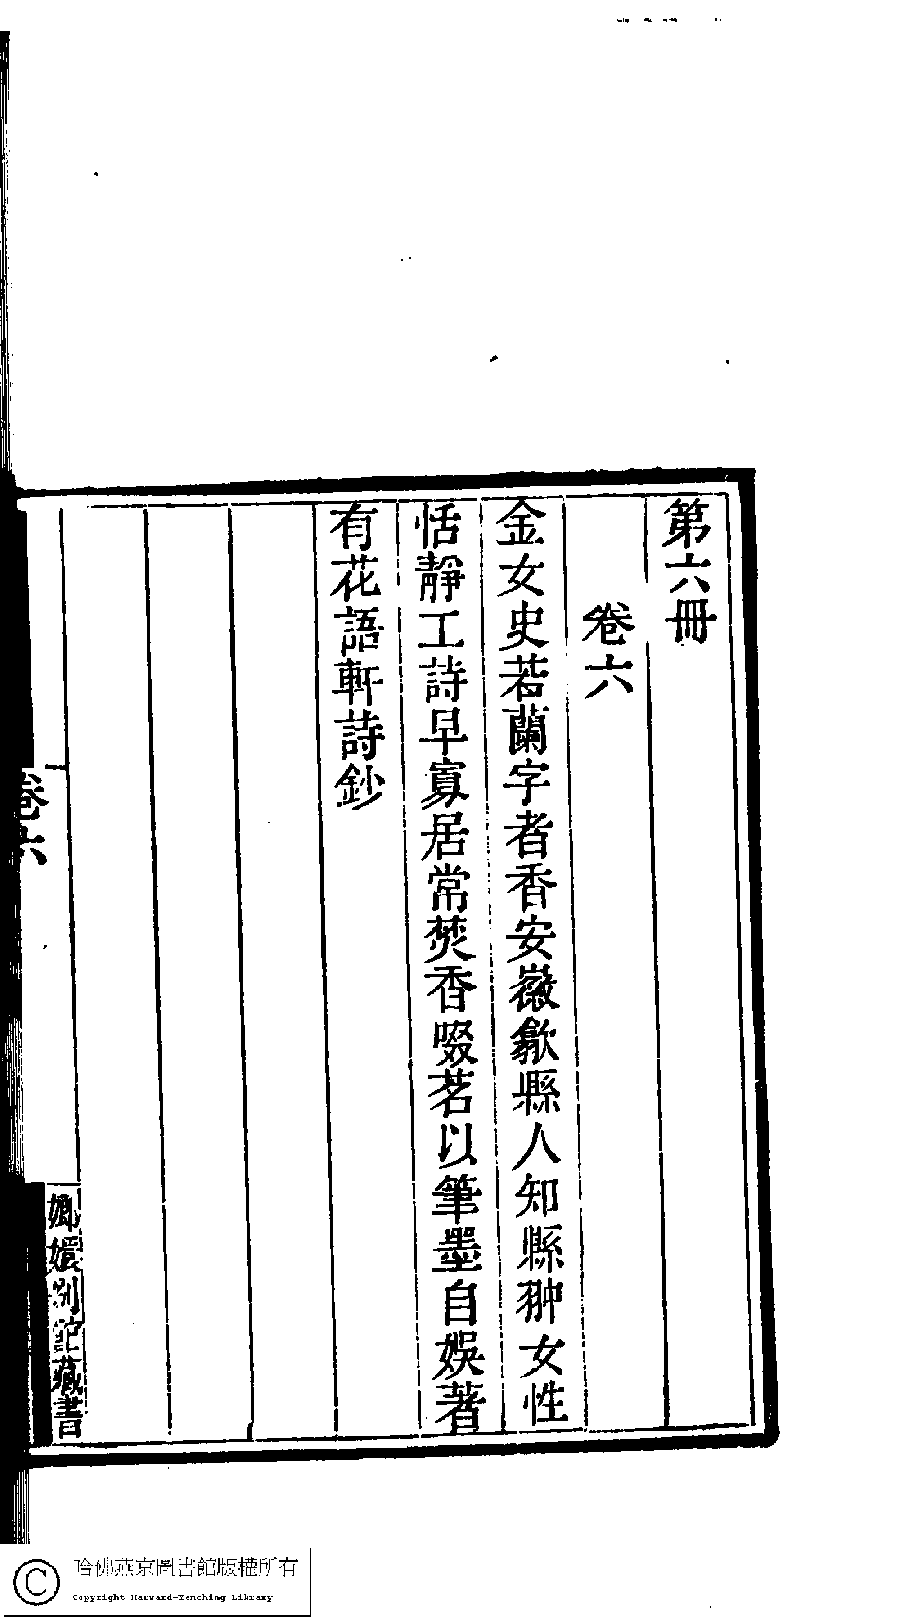 第六冊
卷六
金女史若蘭字者香安徽歙縣人知縣翀女性
恬靜工詩早寡居常焚香啜茗以筆墨自娛著
有花語軒詩鈔
卷六
嫏嬛別館藏書
哈佛燕京圖書館版權所有
Copyright Harvard-Yenching Library